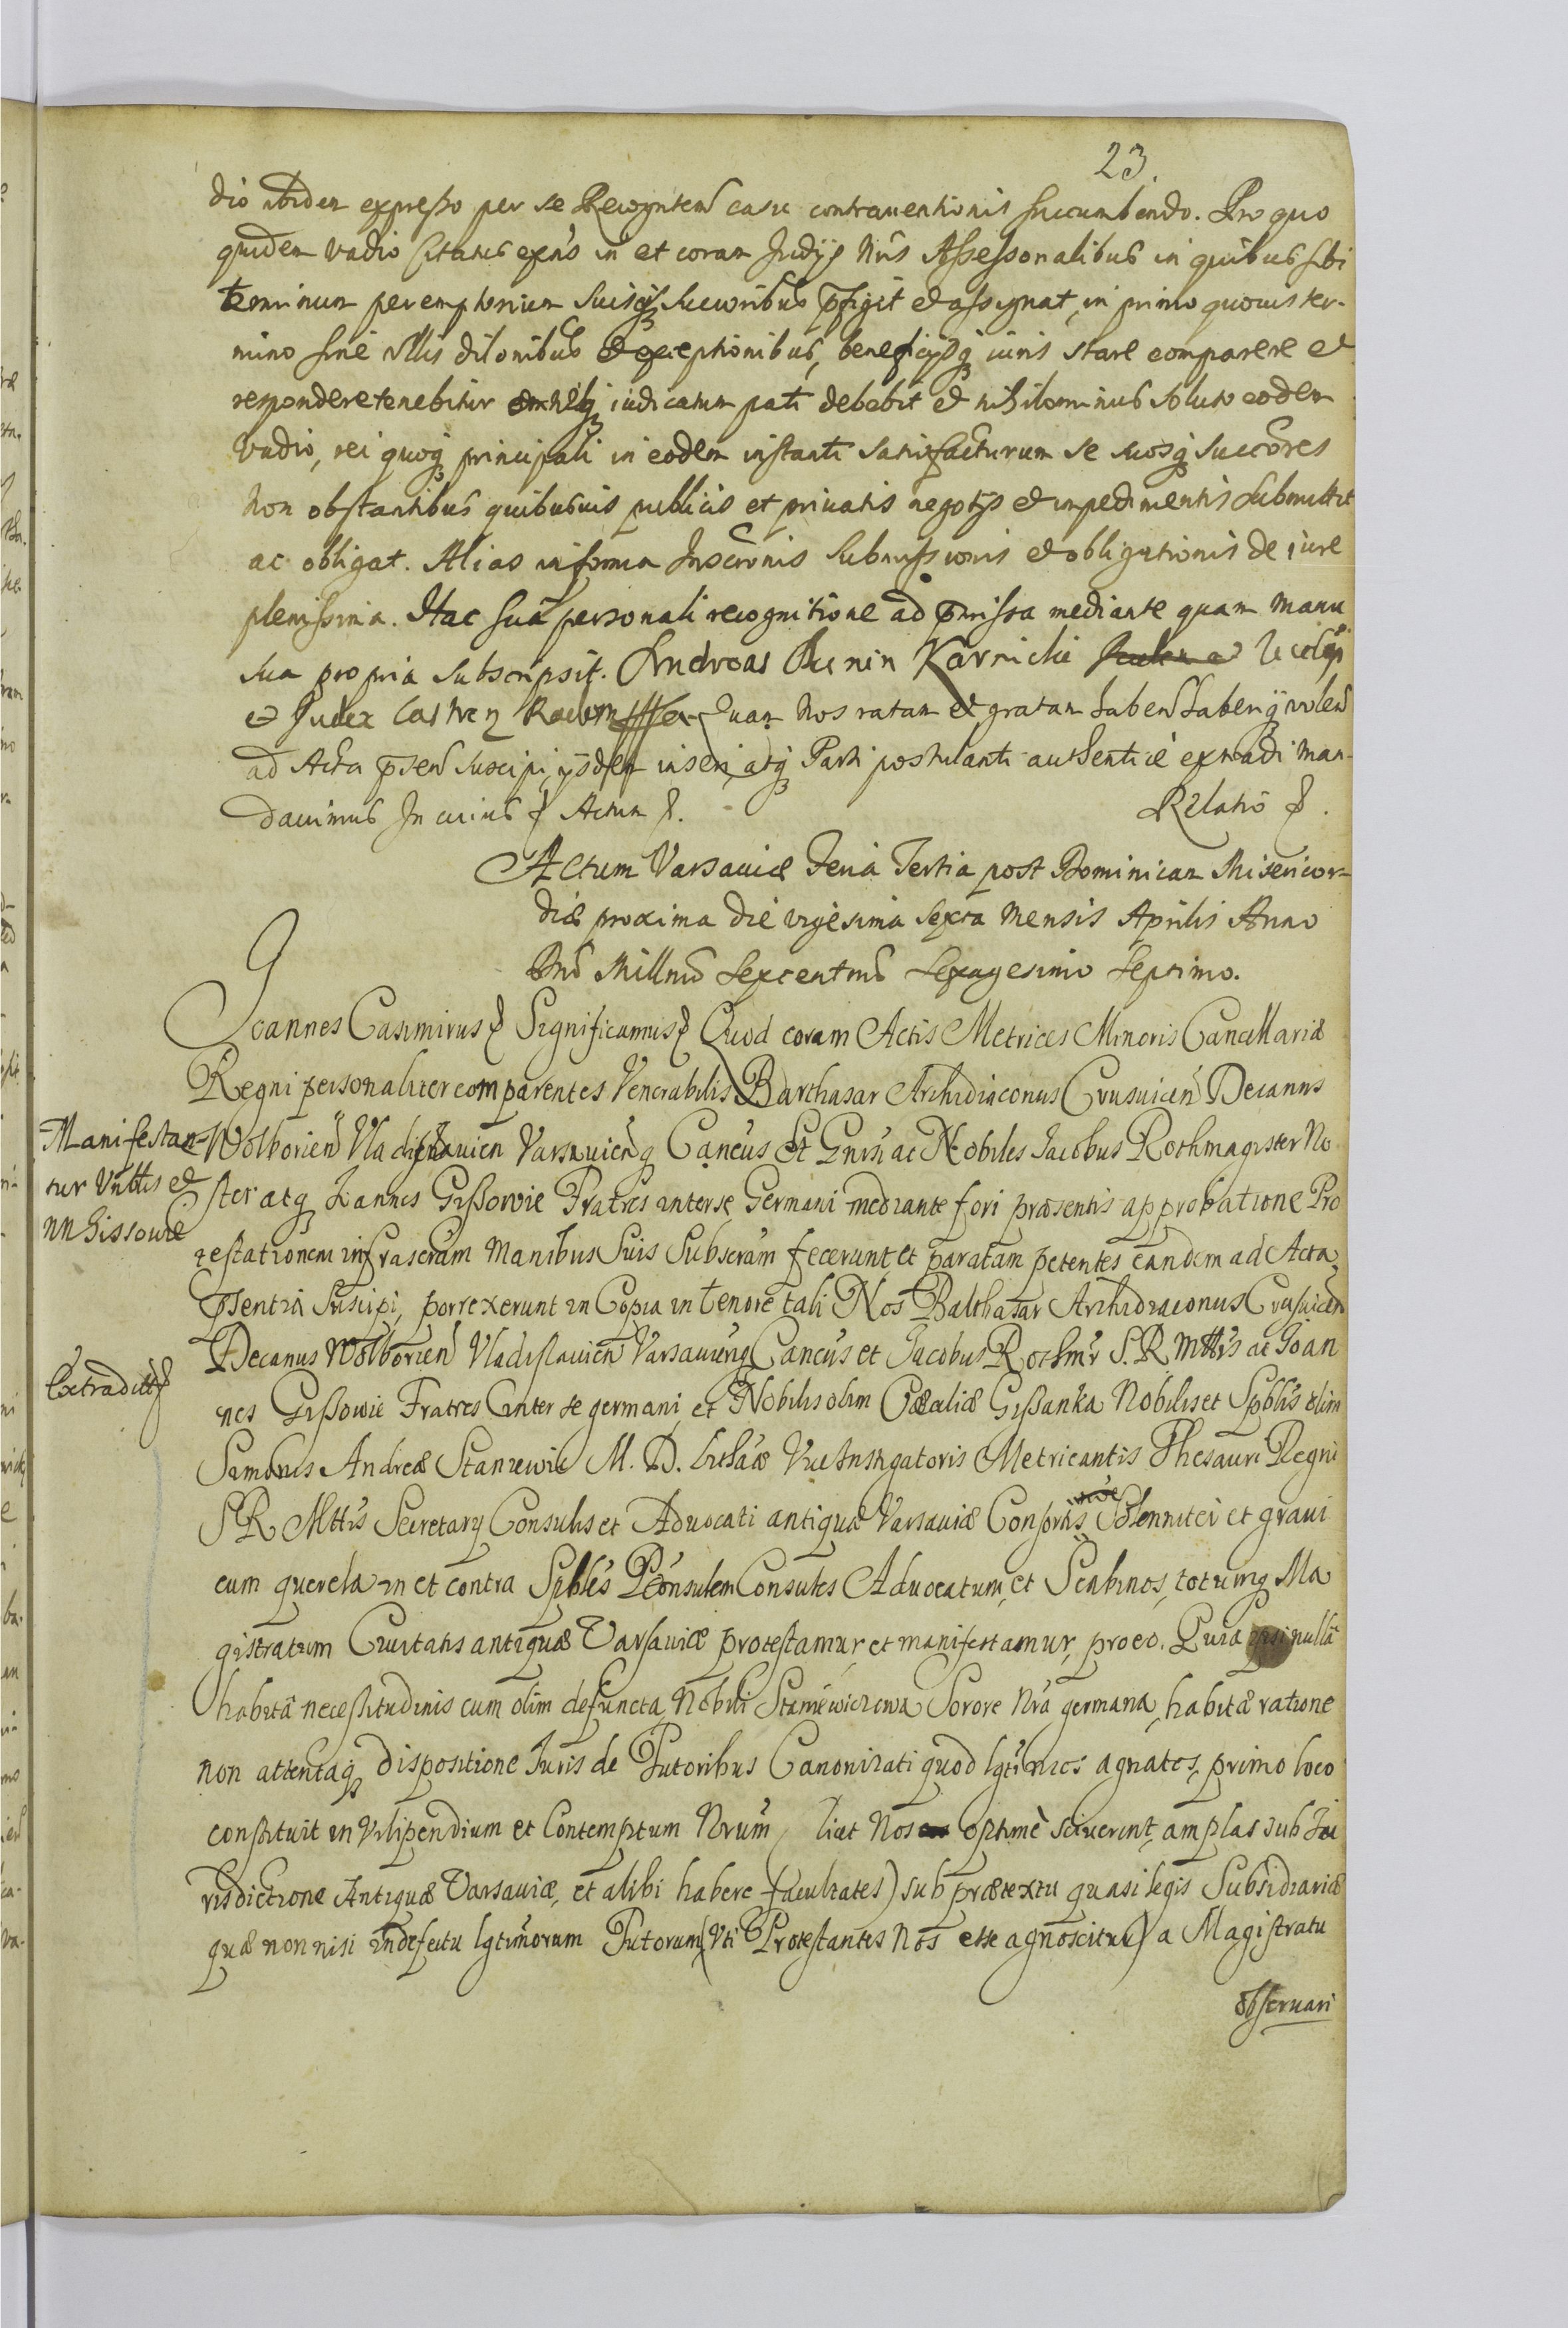 23.
dio ibidem expresso per se Recognten casu contrauentionis succumbendo. Pro quo
quidem vadio citatus exns in et coram Judijs Nris Assessorialibus in quibus sibi
terminum peremptorium suisq Succoribus pfigit et assignat, in primo quouis ter-
mino sine vllis dilonibus et exceptionibus, beneficijsq iuris stare comparere et
respondere tenebitur iudicatum pati debebit et nihilominus soluto eodem
vadio, rei quoq principali in eodem instanti satisfacturum se suosq succores
Non obstantibus quibusuis publicis et priuatis negotijs et impedimentis submittit
ac obligat. Alias in forma Inscronis submissionis et obligationis de iure
plenissima. Hac sua personali recognitione ad pmissa mediante quam manu
sua propria subscripsit. Andreas Bunin Karnicki
et Judex Castren Radom Quam Nos ratam et gratam haben haberiq volen
ad Acta psen suscipi, ijsdem inseri, atq Parti postulanti authenticè extradi man-
dauimus In cuius Actum
Relatio
Actum Varsauiæ Feria Tertia post Dominicam Misericor-
diæ proxima die vigesima sexta Mensis Aprilis Anno
Dni Millmo Sexcentmo Sexagesimo Septimo.
Joannes Casimirus Significamus Quod coram Actis Metrices Minoris Cancellariæ
Regni personaliter comparentes Venerabilis Barthasar Archidiaconus Crusuicen Decanus
Manifestan-
tur Vnttis et
nn Gissowie
Wolborien Vladislauien Varsauienq Cancus et Gnrsi ac Nobiles Jacobus Rothmagister No
ster atq Joannes Gissowie Fratres inter se Germani mediante fori præsentis approbatione Pro
testationem infrascram Manibus Suis Subscram fecerunt et paratam petentes eandem ad Acta
psentia Suscipi, porrexerunt in Copia in tenore tali Nos Balthasar Archidiaconus Crusuicen
Decanus Wolborien Vladislauien Varsauienq Cancus et Jacobus Rothmr S. R. Mttis ac Joan
Extraditt
nes Gissowie Fratres inter se germani, et Nobilis olim Cæciliæ Gissanka Nobilis et Spblis olim
Simonis Andreæ Staniewic M. D. Lithæ Vice Instigatoris Metricantis Thesauri Regni
S R Mttis Secretarij Consulis et Aduocati antiquæ Varsauiæ Consortis Solenniter et graui
cum querela in et contra Spbles Pconsulem Consules Aduocatum, et Scabinos, totumq Ma
gistratum Ciuitatis antiquæ Varsauiæ protestamur, et manifestamur, pro eo. Quia ipsi nulla
habita necessitudinis cum olim defuncta Nobili Staniewiczowa Sorore Nra germana, habita ratione
non attentaq dispositione Juris de Tutoribus Canonizati quod lgtimos agnatos, primo loco
constituit in Vilipendium et Contemptum Nrum (licet Nos optime sciuerint, amplas sub Iu
risdictione Antiquæ Varsauiæ, et alibi habere facultates) sub prætextu quasi legis Subsidiariæ
quæ non nisi in defectu lgtimorum Tutorum (Vti Protestantes Nos esse agnoscitur) a Magistratu
obseruari